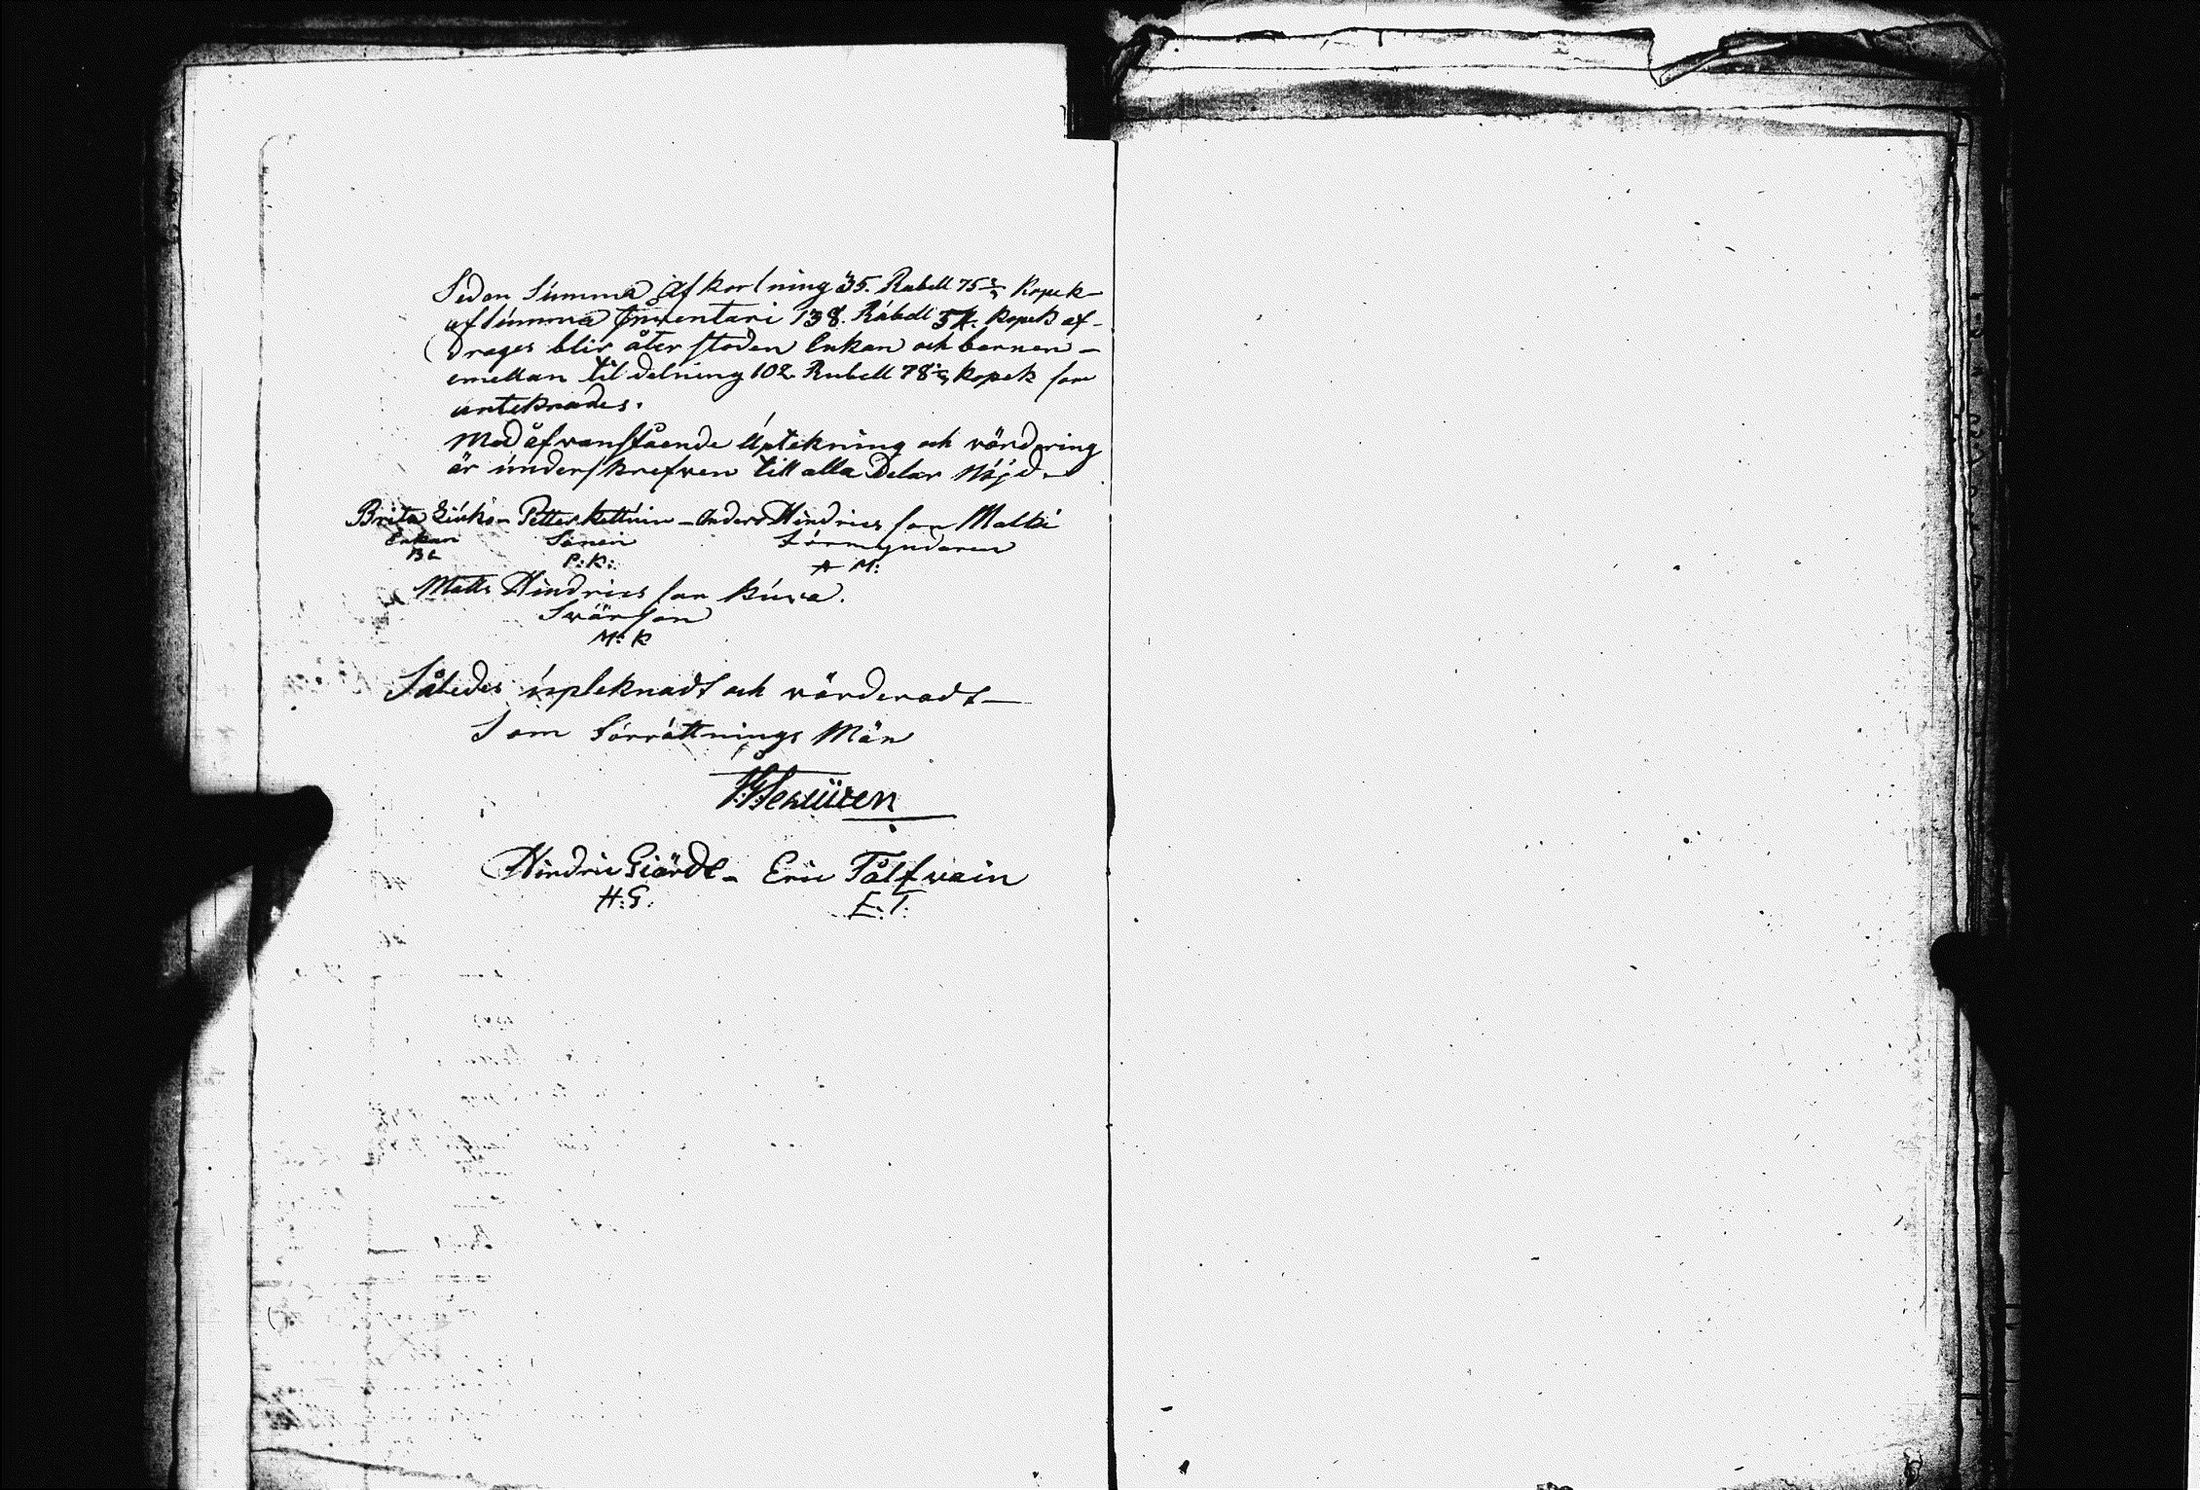 Sedan Summa Afkortning 35. Rubell 75 2/7 Kopek
af Summa Inventari 138. Rubell 54. kopek af-
drages blir återstoden Enkan och barnen
emellan til delning 102 Rubell 78 5/7 kopek som
anteknades.
Med åfvanstående Uptekning och värdering
är underskrefven till alla Delar Nöjd
Brita Petter Anders Hindricsson Matti
Enkan Sonen Förmyndaren
BL P:K: A M:
Matts Hindricsson
Svärson
M: K
Således upteknadt och värderadt
Som Förrättnings Män
Hindric Giärde Eric
H:G: E:T: